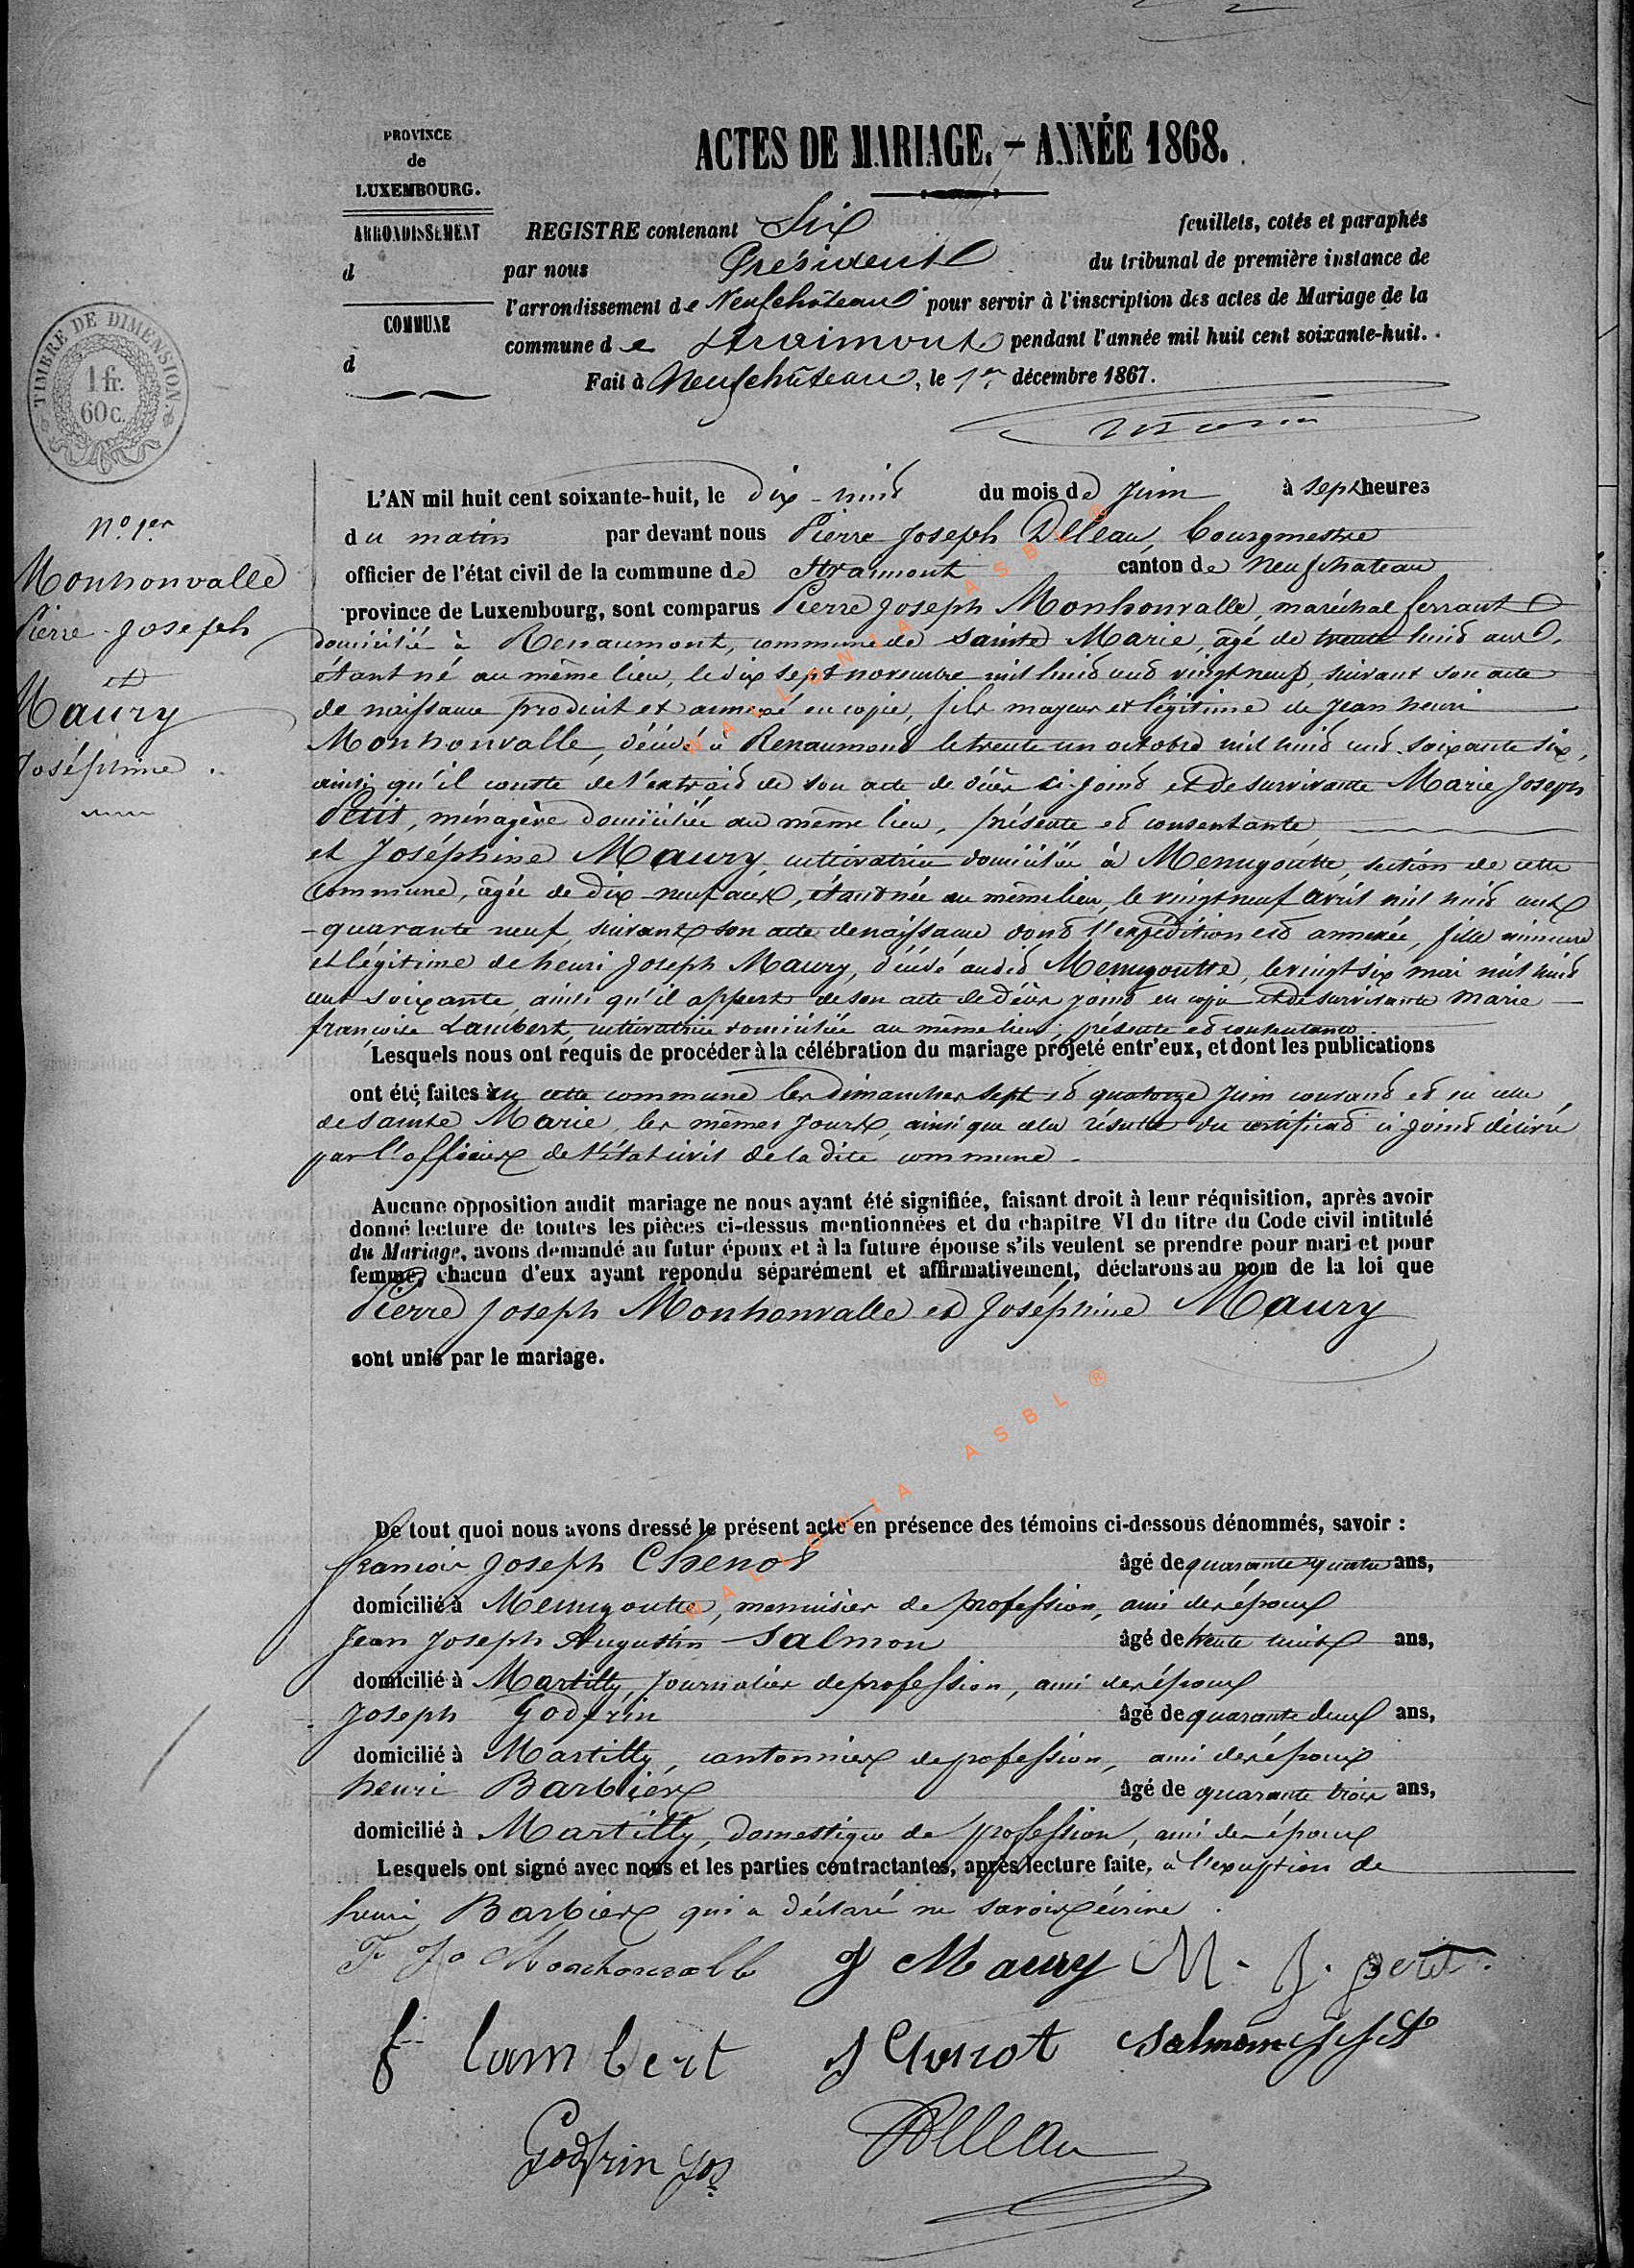 ACTES DE MARIAGE. — ANNÉE 1868.
PROVINCE
de
LUXEMBOURG.
ARRONDISSEMENT
d
COMMUNE
d
TIMBRE DE DIMENSION.
1 fr.
60 c.
REGISTRE contenant Six feuillets, cotés et paraphés
par nous Président du tribunal de première instance de
l'arrondissement de Neufchâteau pour servir à l'inscription des actes de Mariage de la
commune de Straimont pendant l'année mil huit cent soixante-huit.
Fait à Neufchâteau, le 1er décembre 1867.
N° 1er
Monhonvalle
Pierre-Joseph
et
Maury
Joséphine.
L'AN mil huit cent soixante-huit, le dix-huit du mois de Juin à sept heures
du matin par devant nous Pierre Joseph Delleau, bourgmestre
officier de l'état civil de la commune de Straimont canton de Neufchateau
province de Luxembourg, sont comparus Pierre Joseph Monhonvalle, maréchal ferrant
domicilié à Renaumont, commune de Sainte Marie, âgé de trente huit ans,
étant né au même lieu, le dix sept novembre mil huit cent vingt neuf, suivant son acte
de naissance produit et annexé en copie, fils majeur et légitime de Jean henri
Monhonvalle, décédé à Renaumont le trente un octobre mil huit cent soixante six,
ainsi qu'il conste de l'extrait de son acte de décès ci-joint et de survivante Marie Joseph
Petit, ménagère domiciliée au même lieu, présente et consentante,
et Joséphine Maury, cultivatrice domiciliée à Menugoutte, section de cette
commune, âgée de dix-neuf ans, étant née au même lieu, le vingt neuf avril mil huit cent
quarante neuf, suivant son acte de naissance dont l'expédition est annexée, fille mineure
et légitime de henri Joseph Maury, décédé audit Menugoutte, le vingt six mai mil huit
cent soixante, ainsi qu'il appert de son acte de décès joint en copie et de survivante Marie
françoise Lambert, cultivatrice domiciliée au même lieu, présente et consentante.
Lesquels nous ont requis de procéder à la célébration du mariage projeté entr'eux, et dont les publications
ont été faites en cette commune les dimanches sept et quatorze Juin courant et en celle
de Sainte Marie, les mêmes jours, ainsi que cela résulte du certificat ci joint délivré
par l'officier de l'état civil de la dite commune.
Aucune opposition audit mariage ne nous ayant été signifiée, faisant droit à leur réquisition, après avoir
donné lecture de toutes les pièces ci-dessus mentionnées et du chapitre VI du titre du Code civil intitulé
du Mariage, avons demandé au futur époux et à la future épouse s'ils veulent se prendre pour mari et pour
femme, chacun d'eux ayant repondu séparément et affirmativement, déclarons au nom de la loi que
Pierre Joseph Monhonvalle et Joséphine Maury
sont unis par le mariage.
De tout quoi nous avons dressé le présent acte en présence des témoins ci-dessous dénommés, savoir :
francois Joseph Chenot âgé de quarante quatre ans,
domicilié à Menugoutte, menuisier de profession, ami des époux
Jean Joseph Augustin Salmon âgé de trente huit ans,
domicilié à Martilly, Journalier de profession, ami des époux
Joseph Godfrin âgé de quarante deux ans,
domicilié à Martilly, cantonnier de profession, ami des époux
henri Barbier âgé de quarante trois ans,
domicilié à Martilly, domestique de profession, ami des époux
Lesquels ont signé avec nous et les parties contractantes, après lecture faite, à l'exception de
henri Barbier qui a déclaré ne savoir écrire.
Monhonvalle J Maury M. J. petit.
f lambert J Chenot Salmon JJA
Godfrin Jos Delleau
WALLONIA ASBL ®
WALLONIA ASBL ®